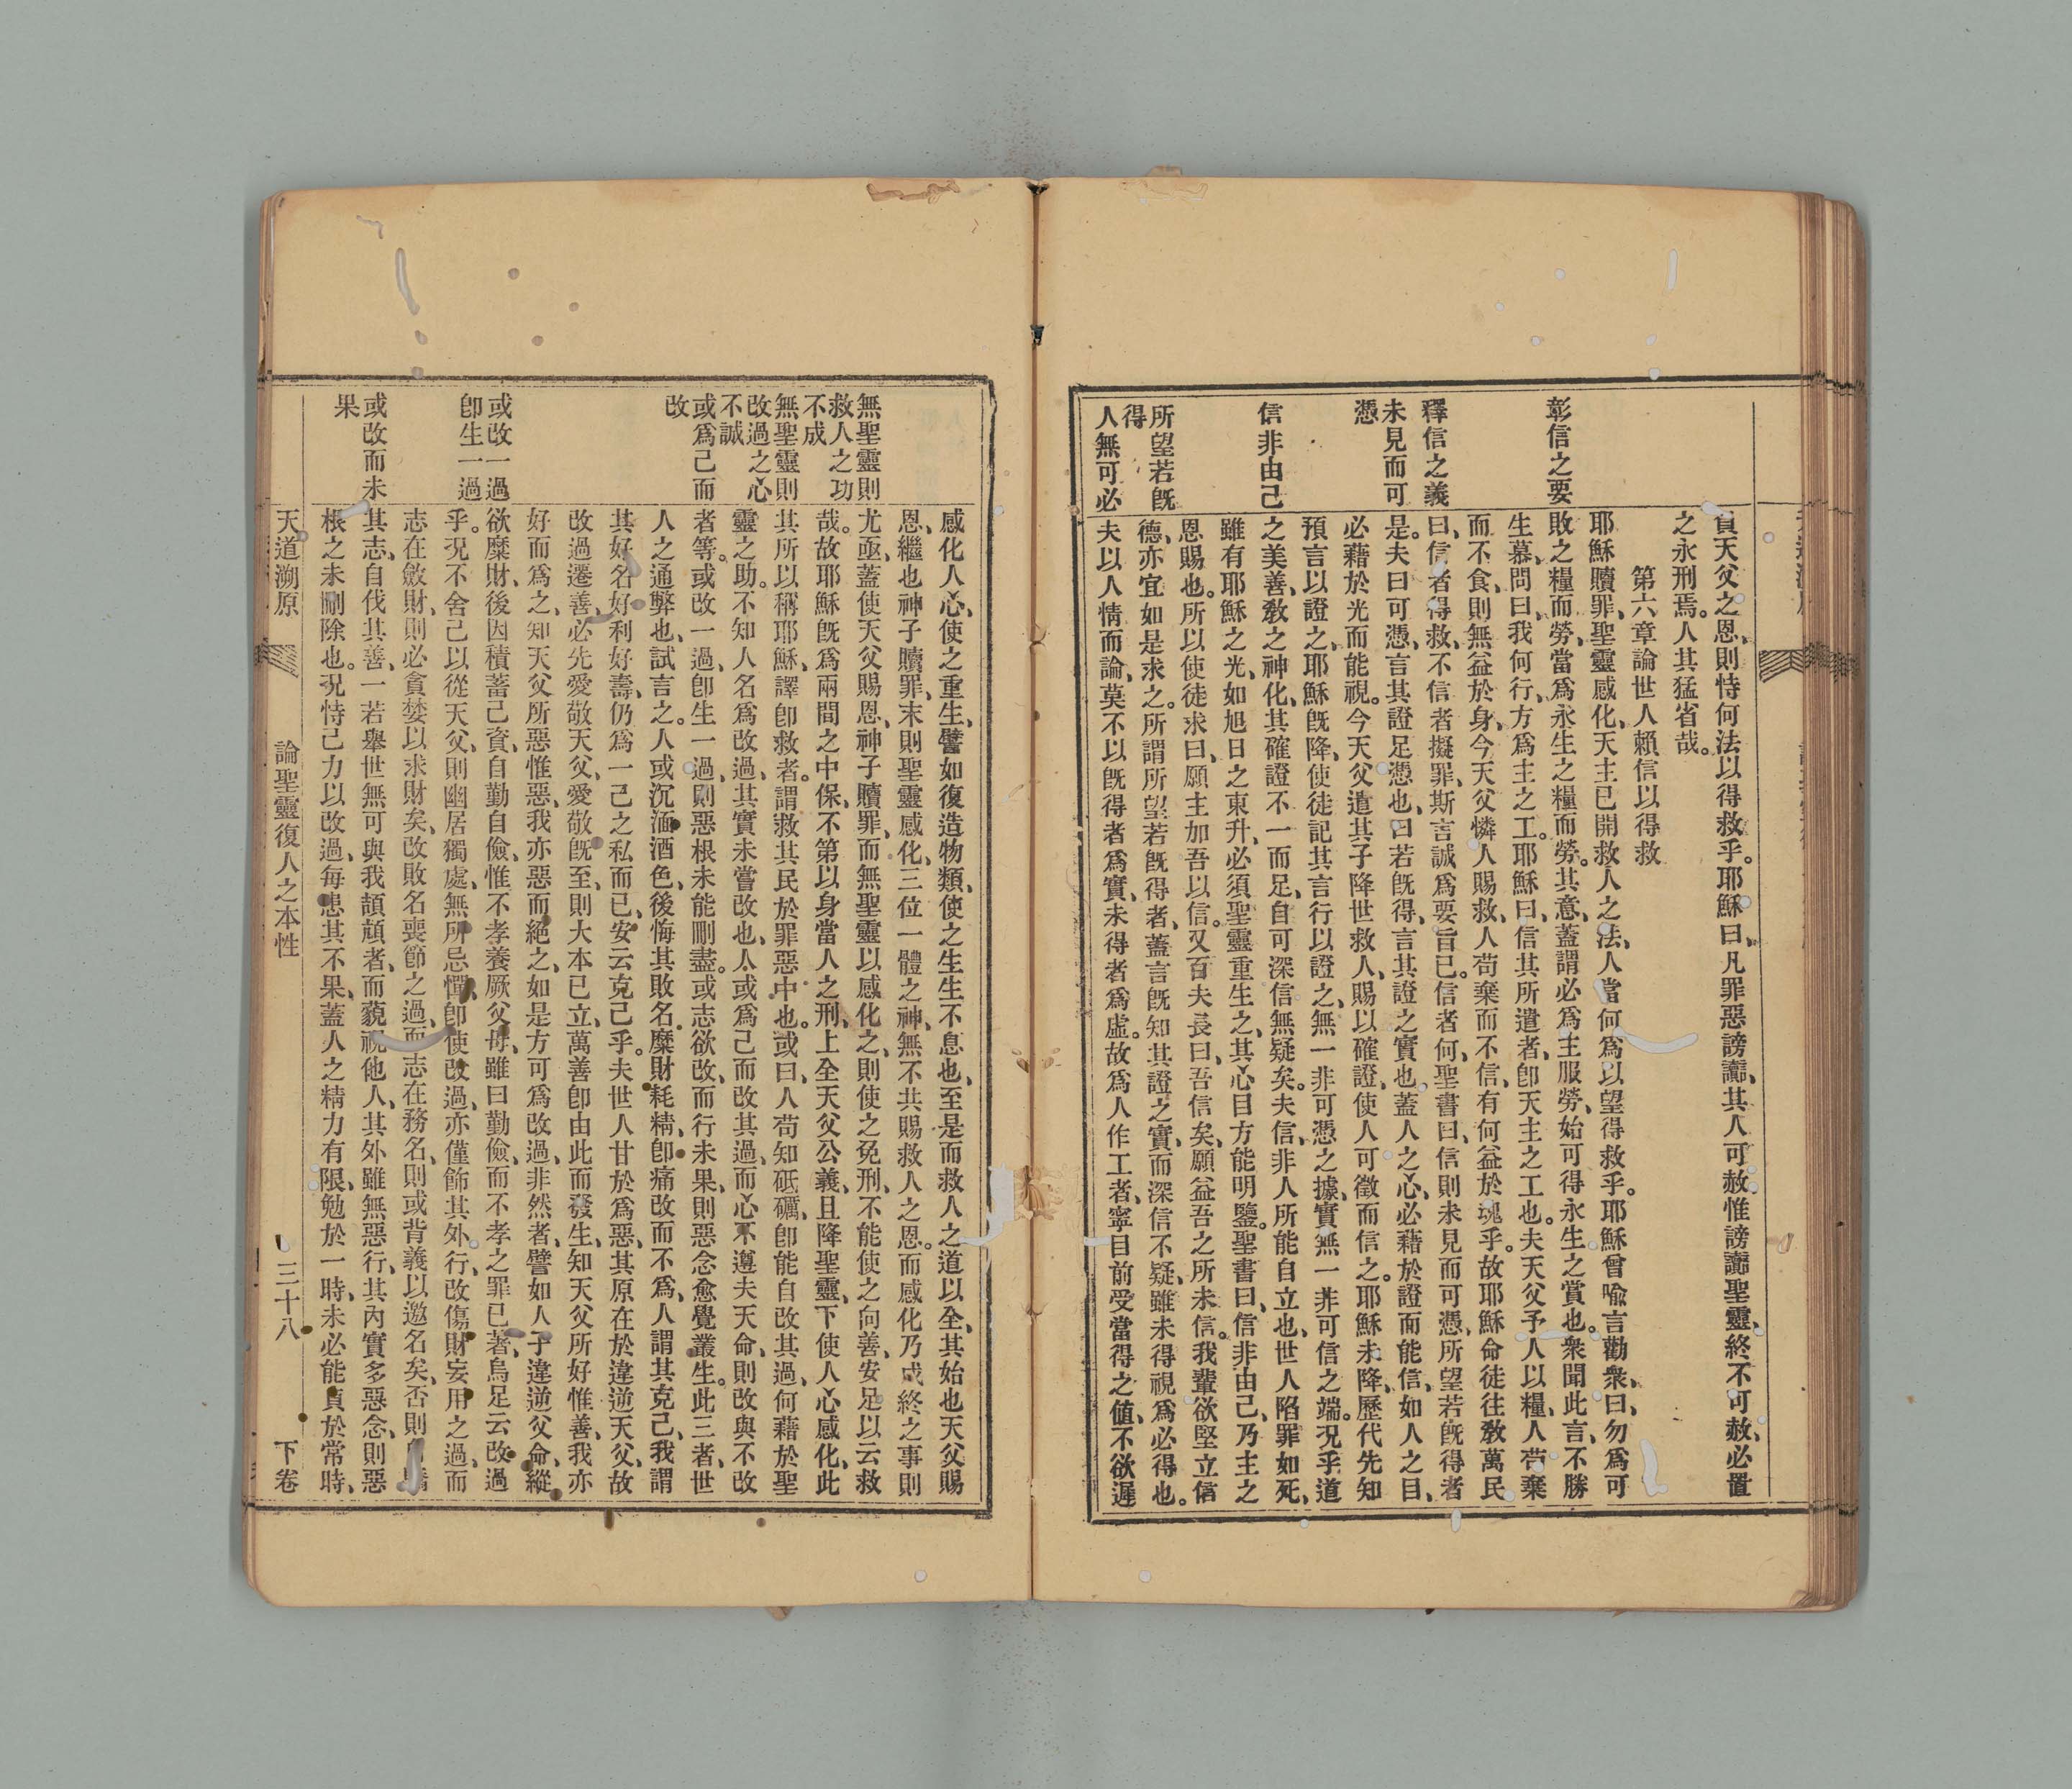 負天父之恩、則恃何法以得救乎。耶穌曰、凡罪惡謗讟、其人可赦、惟謗讟聖靈、終不可赦、必置
之永刑焉。人其猛省哉。
第六章論世人賴信以得救
耶穌贖罪、聖靈感化、天主已開救人之法、人當何爲以望得救乎。耶穌曾喻言勸衆、曰、勿爲可
彰信之要
敗之糧而勞、當爲永生之糧而勞。其意、蓋謂必爲主服勞、始可得永生之賞也。衆聞此言、不勝
生慕、問曰、我何行、方爲主之工。耶穌曰、信其所遣者、卽天主之工也。夫天父予人以糧、人苟棄
而不食、則無益於身、今天父憐人賜救、人苟棄而不信、有何益於魂乎。故耶穌命徒往敎萬民
釋信之義
曰、信者得救、不信者擬罪、斯言誠爲要旨已。信者何、聖書曰、信則未見而可憑、所望若旣得者
未見而可
憑
是。夫曰可憑、言其證足憑也、曰若旣得、言其證之實也、蓋人之心、必藉於證而能信、如人之目、
必藉於光而能視。今天父遣其子降世救人、賜以確證、使人可徵而信之。耶穌未降、歷代先知
預言以證之、耶穌旣降、使徒記其言行以證之、無一非可憑之據、實無一非可信之端。況乎道
信非由己
之美善、敎之神化、其確證不一而足、自可深信無疑矣。夫信、非人所能自立也、世人陷罪如死、
雖有耶穌之光、如旭日之東升、必須聖靈重生之、其心目方能明鑒。聖書曰、信非由己、乃主之
恩賜也。所以使徒求曰、願主加吾以信。又百夫長曰、吾信矣、願益吾之所未信。我輩欲堅立信
所望若旣
得
德、亦宜如是求之。所謂所望若旣得者、蓋言旣知其證之實、而深信不疑、雖未得視爲必得也。
人無可必
夫以人情而論、莫不以旣得者爲實、未得者爲虛。故爲人作工者、寧目前受當得之値、不欲遲
感化人心、使之重生、譬如復造物類、使之生生不息也、至是而救人之道以全、其始也天父賜
恩、繼也神子贖罪、末則聖靈感化、三位一體之神、無不共賜救人之恩。而感化乃成終之事則
無聖靈則
救人之功
不成
尤亟、蓋使天父賜恩、神子贖罪、而無聖靈以感化之、則使之免刑、不能使之向善、安足以云救
哉。故耶穌旣爲兩間之中保、不第以身當人之刑、上全天父公義、且降聖靈、下使人心感化、此
無聖靈則
改過之心
不誠
其所以稱耶穌、譯卽救者。謂救其民於罪惡中也。或曰、人苟知砥礪、卽能自改其過、何藉於聖
靈之助。不知人名爲改過、其實未嘗改也、人或爲己而改其過、而心不遵夫天命、則改與不改
或爲己而
改
者等。或改一過、卽生一過、則惡根未能刪盡。或志欲改、而行未果、則惡念愈覺叢生。此三者、世
人之通弊也、試言之。人或沉湎酒色、後悔其敗名糜財耗精、卽痛改而不爲、人謂其克己、我謂
其好名好利好壽、仍爲一己之私而已、安云克己乎。夫世人甘於爲惡、其原在於違逆天父、故
改過遷善、必先愛敬天父、愛敬旣至、則大本已立、萬善卽由此而發生、知天父所好惟善、我亦
好而爲之、知天父所惡惟惡、我亦惡而絕之、如是方可爲改過、非然者、譬如人子違逆父命、縱
或改一過
卽生一過
欲糜財、後因積蓄己資、自勤自儉、惟不孝養厥父母、雖曰勤儉、而不孝之罪已著、烏足云改過
乎。況不舍己以從天父、則幽居獨處、無所忌憚、卽使改過、亦僅飾其外行、改傷財妄用之過、而
志在斂財、則必貪婪以求財矣、改敗名喪節之過、而志在務名、則或背義以邀名矣、否則驕
或改而未
果
其志、自伐其善、一若舉世無可與我頡頏者、而藐視他人、其外雖無惡行、其內實多惡念、則惡
根之未刪除也。況恃己力以改過、每患其不果、蓋人之精力有限、勉於一時、未必能貞於常時、
天道溯原 論聖靈復人之本性 三十八 下卷